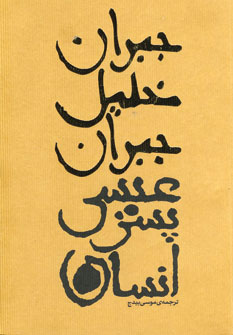 جبران
خلیل
جبران
عیسی
پسر
انسان
ترجمه‌ی موسی بیدج